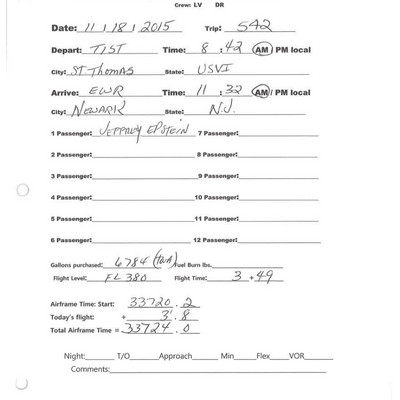 Crew: LV DR
Date: 11 / 18 / 2015 Trip: 542
Depart: TIST Time: 8 : 42 AM / PM local
City: ST. THOMAS State: USVI
Arrive: EWR Time: 11 : 32 AM / PM local
City: NEWARK State: N.J.
1 Passenger: JEFFREY EPSTEIN 7 Passenger:
2 Passenger: 8 Passenger:
3 Passenger: 9 Passenger:
4 Passenger: 10 Passenger:
5 Passenger: 11 Passenger:
6 Passenger: 12 Passenger:
Gallons purchased: 6784 Fuel Burn lbs.
Flight Level: FL 380 Flight Time: 3 + 49
Airframe Time: Start: 33720 . 2
Today's flight: + 3 . 8
Total Airframe Time = 33724 . 0
Night: T/O Approach Min Flex VOR
Comments: